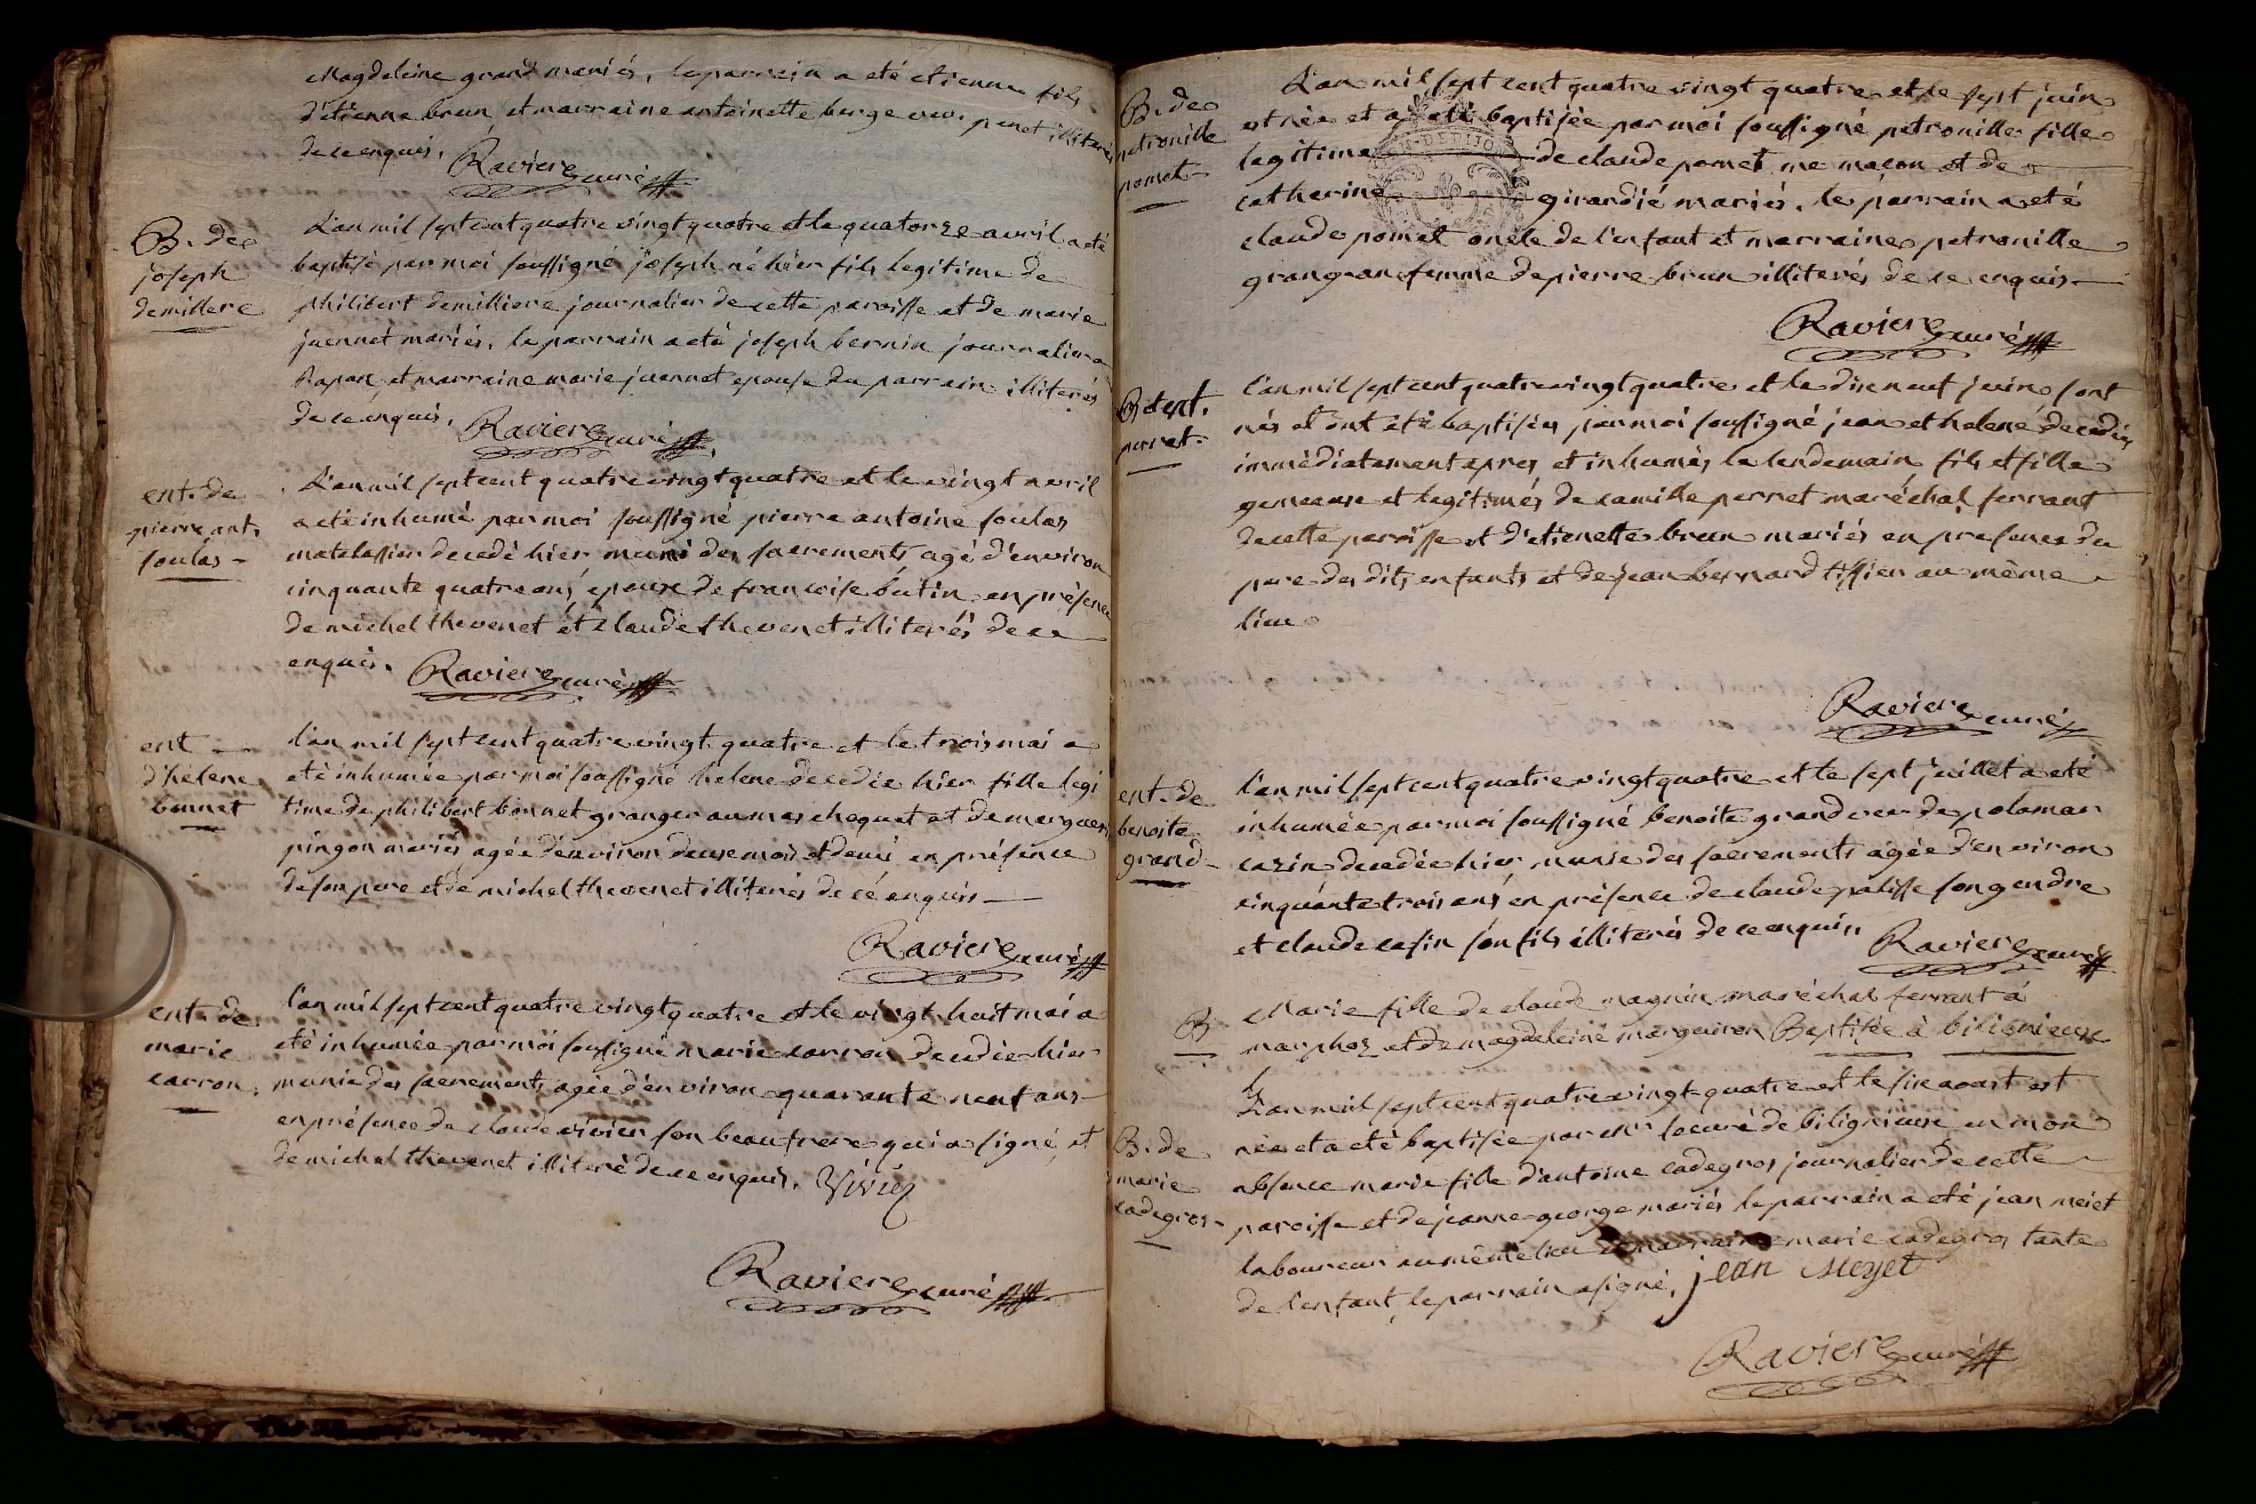 Magdeleine grand mariés, le parrain a eté etienne fils
d'étienne brun et marraine antoinette berge veu. penet illiterés
de ce enquis. Raviere curé
B. de
joseph
demillere
L'an mil sept cent quatre vingt quatre et le quatorze avril a eté
baptisé par moi soussigné joseph né hier fils legitime de
philibert demilliere journalier de cette paroisse et de marie
juennet mariés, le parrain a eté joseph bernin journalier a
Rapan et marraine marie juennet epouse du parrain illiterés
de ce enquis. Raviere curé
ent. de
pierre ant.
soulas
L'an mil sept cent quatre vingt quatre et le vingt avril
a eté inhumé par moi soussigné pierre antoine soulas
matelassier decedé hier muni des sacrements agé d'environ
cinquante quatre ans epoux de francoise butin en présence
de michel thevenet et claude thevenet illiterés de ce
enquis. Raviere curé
ent
d'helene
bonnet
l'an mil sept cent quatre vingt quatre et le trois mai a
eté inhumée par moi soussigné helene decedée hier fille legi
time de philibert bonnet granger au mas choquet et de marguerite
pingon mariés agée d'environ deux mois et demi en présence
de son pere et de michel thevenet illiterés de cé enquis
Raviere curé
ent. de
marie
carron
l'an mil sept cent quatre vingt quatre et le vingt huit mai a
eté inhumée par moi soussigné marie carron decedée hier
munie des sacrements agée d'environ quarante neuf ans
en présence de claude vivier son beau frere qui a signé et
de michel thevenet illiteré de ce enquis. Vivié
Raviere curé
B. de
petronille
pomet
L'an mil sept cent quatre vingt quatre et le sept juin
est née et a eté baptisée par moi soussigné petronille fille
legitime de claude pomet me macon et de
catherine girardié mariés. le parrain a eté
claude pomet oncle de l'enfant et marraine petronille
grangran femme de pierre brun illiterés de ce enquis
Raviere curé
B et ent.
perret
l'an mil sept cent quatre vingt quatre et le dix neuf juin sont
nés et ont eté baptisés par moi soussigné jean et helene decedés
immédiatement apres et inhumés le lendemain fils et fille
gemeaux et legitimés de camille perret maréchal ferrant
de cette paroisse et d'etienette brun mariés en presence du
pere des dits enfants et de jean bernard tissier au même
lieu
Raviere curé
ent. de
benoite
grand
l'an mil sept cent quatre vingt quatre et le sept juillet a eté
inhumée par moi soussigné benoite grand veu de polomar
cazin decedée hier munie des sacrements agée d'environ
cinquante trois ans en présence de claude palisse son gendre
et claude casin son fils illiterés de ce enquis. Raviere curé
B
Marie fille de claude magnin maréchal ferrant á
marphoz et de magdeleine marguiron Baptisée à bilignieux
B. de
marie
cadegros
L'an mil sept cent quatre vingt quatre et le six aoust est
née et a eté baptisée par mr le curé de biligneux en mon
absence marie fille d'antoine cadegros journalier de cette
paroisse et de jeanne george mariés le parrain a eté jean meiet
laboureur au même lieu et marraine marie cadegros tante
de l'enfant, le parrain a signé. jean Meyet
Raviere curé